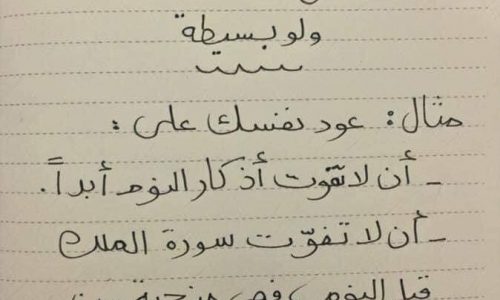 ولو بسيطة
مثال: عود نفسك على:
- أن لا تفوّت أذكار النوم أبداً.
- أن لا تفوّت سورة الملك
قبل النوم، فهي منجية من